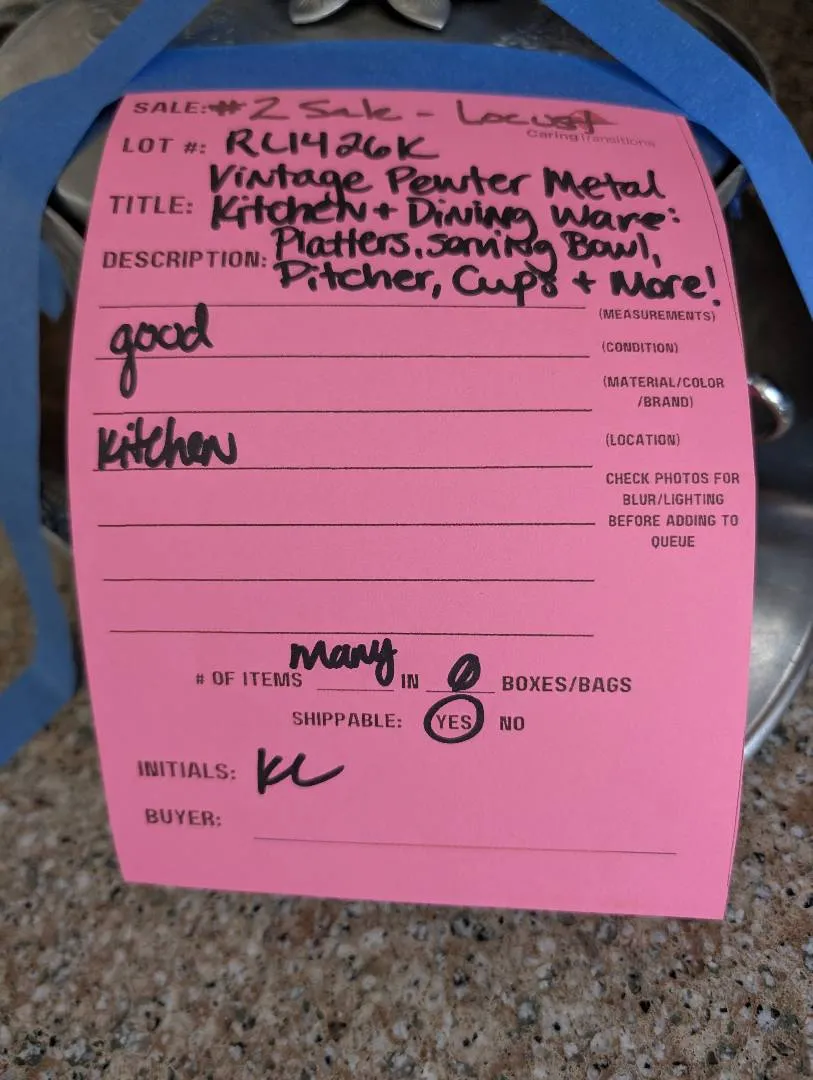 SALE: #2 Sale - Locust
CaringTransitions
LOT #: RL1426K
Vintage Pewter Metal
TITLE: Kitchen + Dining Ware:
Platters, Serving Bowl,
DESCRIPTION: Pitcher, Cups + More!
(MEASUREMENTS)
good (CONDITION)
(MATERIAL/COLOR
/BRAND)
Kitchen (LOCATION)
CHECK PHOTOS FOR
BLUR/LIGHTING
BEFORE ADDING TO
QUEUE
# OF ITEMS many IN 0 BOXES/BAGS
SHIPPABLE: YES NO
INITIALS: KC
BUYER: